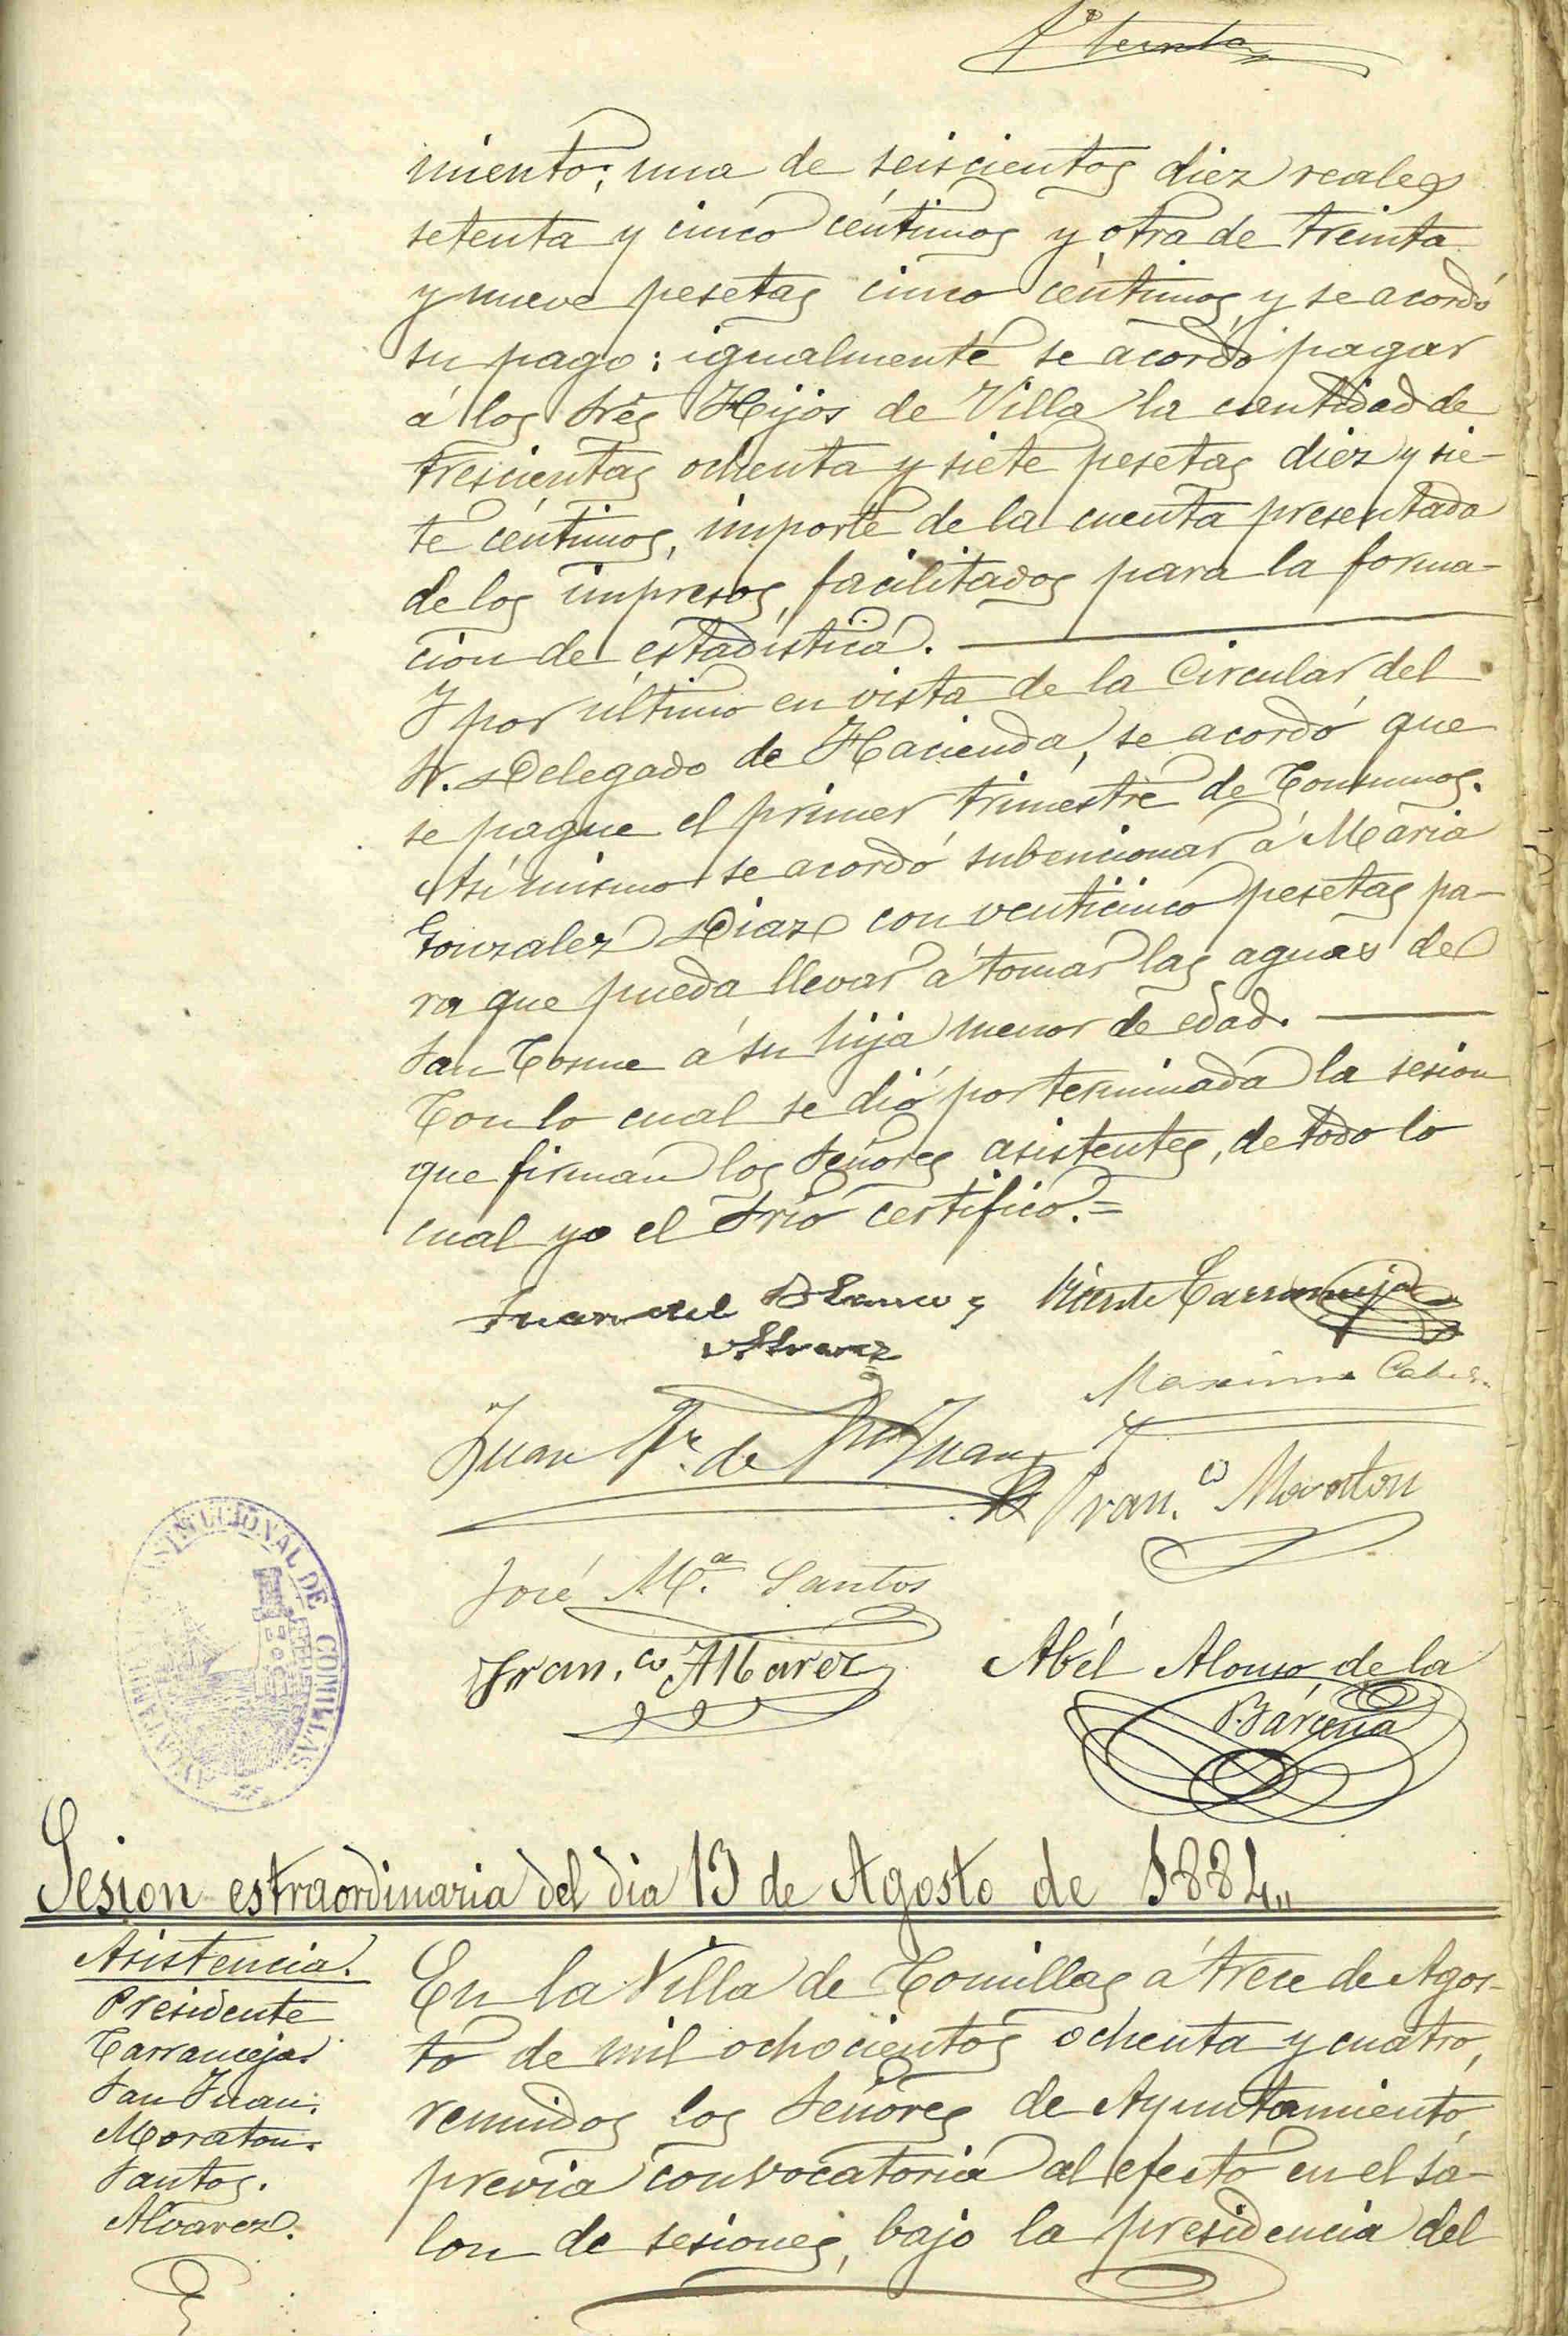 Fº treinta
miento; una de seiscientos diez reales
setenta y cinco céntimos y otra de treinta
y nueve pesetas cinco céntimos, y se acordó
su pago: igualmente se acordó pagar
á los tres Hijos de Villa la cantidad de
trescientas ochenta y siete pesetas diez y sie-
te céntimos, importe de la cuenta presentada
de los impresos facilitados para la forma-
cion de estadística.
Y por último en vista de la Circular del
Sr. Delegado de Hacienda, se acordó que
se pague el primer trimestre de Consumos.
Asi mismo se acordó subencionar á Maria
Gonzalez Diaz con venticinco pesetas pa-
ra que pueda llevar á tomar las aguas de
San Cosme á su hija menor de edad.
Con lo cual se dió por terminada la sesion
que firman los Señores asistentes, de todo lo
cual yo el Srio certifico.=
Juan del Blanco y Vicente Carranceja
Alvarez
Maximo
Juan Fr. de San Juan
Fran.co Moraton
José M.ª Santos
Fran.co Albarez
Abél Alonso de la
Bárcena
AYUNTAMIENTO CONSTITUCIONAL DE COMILLAS
Sesion estraordinaria del dia 13 de Agosto de 1884.,,
Asistencia.
Presidente
Carranceja.
San Juan.
Moraton.
Santos.
Alvarez.
En la Villa de Comillas á trece de Agos-
to de mil ochocientos ochenta y cuatro,
reunidos los Señores de Ayuntamiento,
previa convocatoria al efecto en el sa-
lon de sesiones, bajo la presidencia del